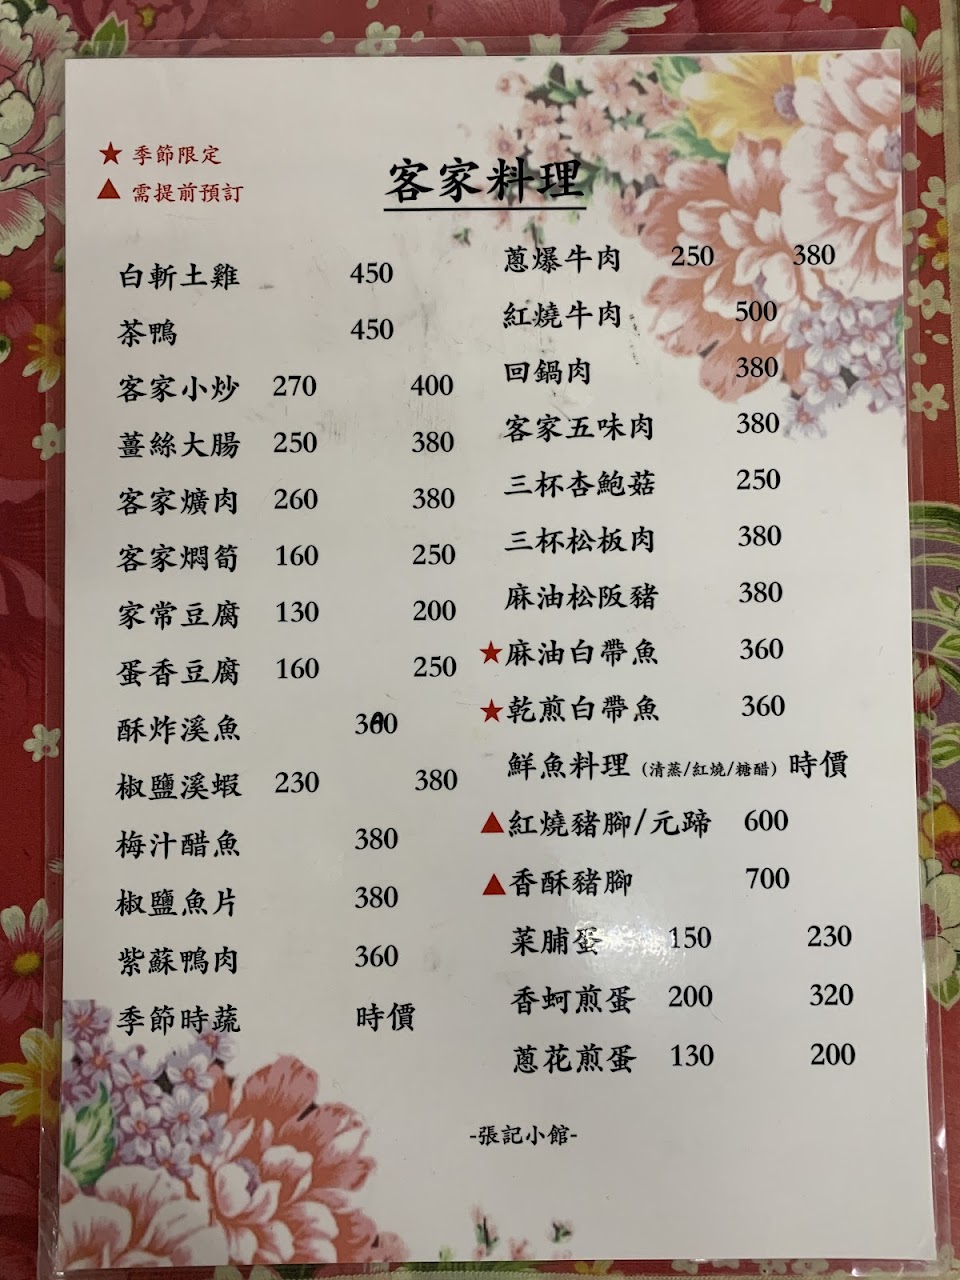 ★ 季節限定
▲ 需提前預訂
客家料理
白斬土雞 450
茶鴨 450
客家小炒 270 400
薑絲大腸 250 380
客家爌肉 260 380
客家燜筍 160 250
家常豆腐 130 200
蛋香豆腐 160 250
酥炸溪魚
椒鹽溪蝦 230 380
梅汁醋魚 380
椒鹽魚片 380
紫蘇鴨肉 360
季節時蔬 時價
蔥爆牛肉 250 380
紅燒牛肉 500
回鍋肉 380
客家五味肉 380
三杯杏鮑菇 250
三杯松板肉 380
麻油松阪豬 380
★麻油白帶魚 360
★乾煎白帶魚 360
鮮魚料理 (清蒸/紅燒/糖醋) 時價
▲紅燒豬腳/元蹄 600
▲香酥豬腳 700
菜脯蛋 150 230
香蚵煎蛋 200 320
蔥花煎蛋 130 200
-張記小館-